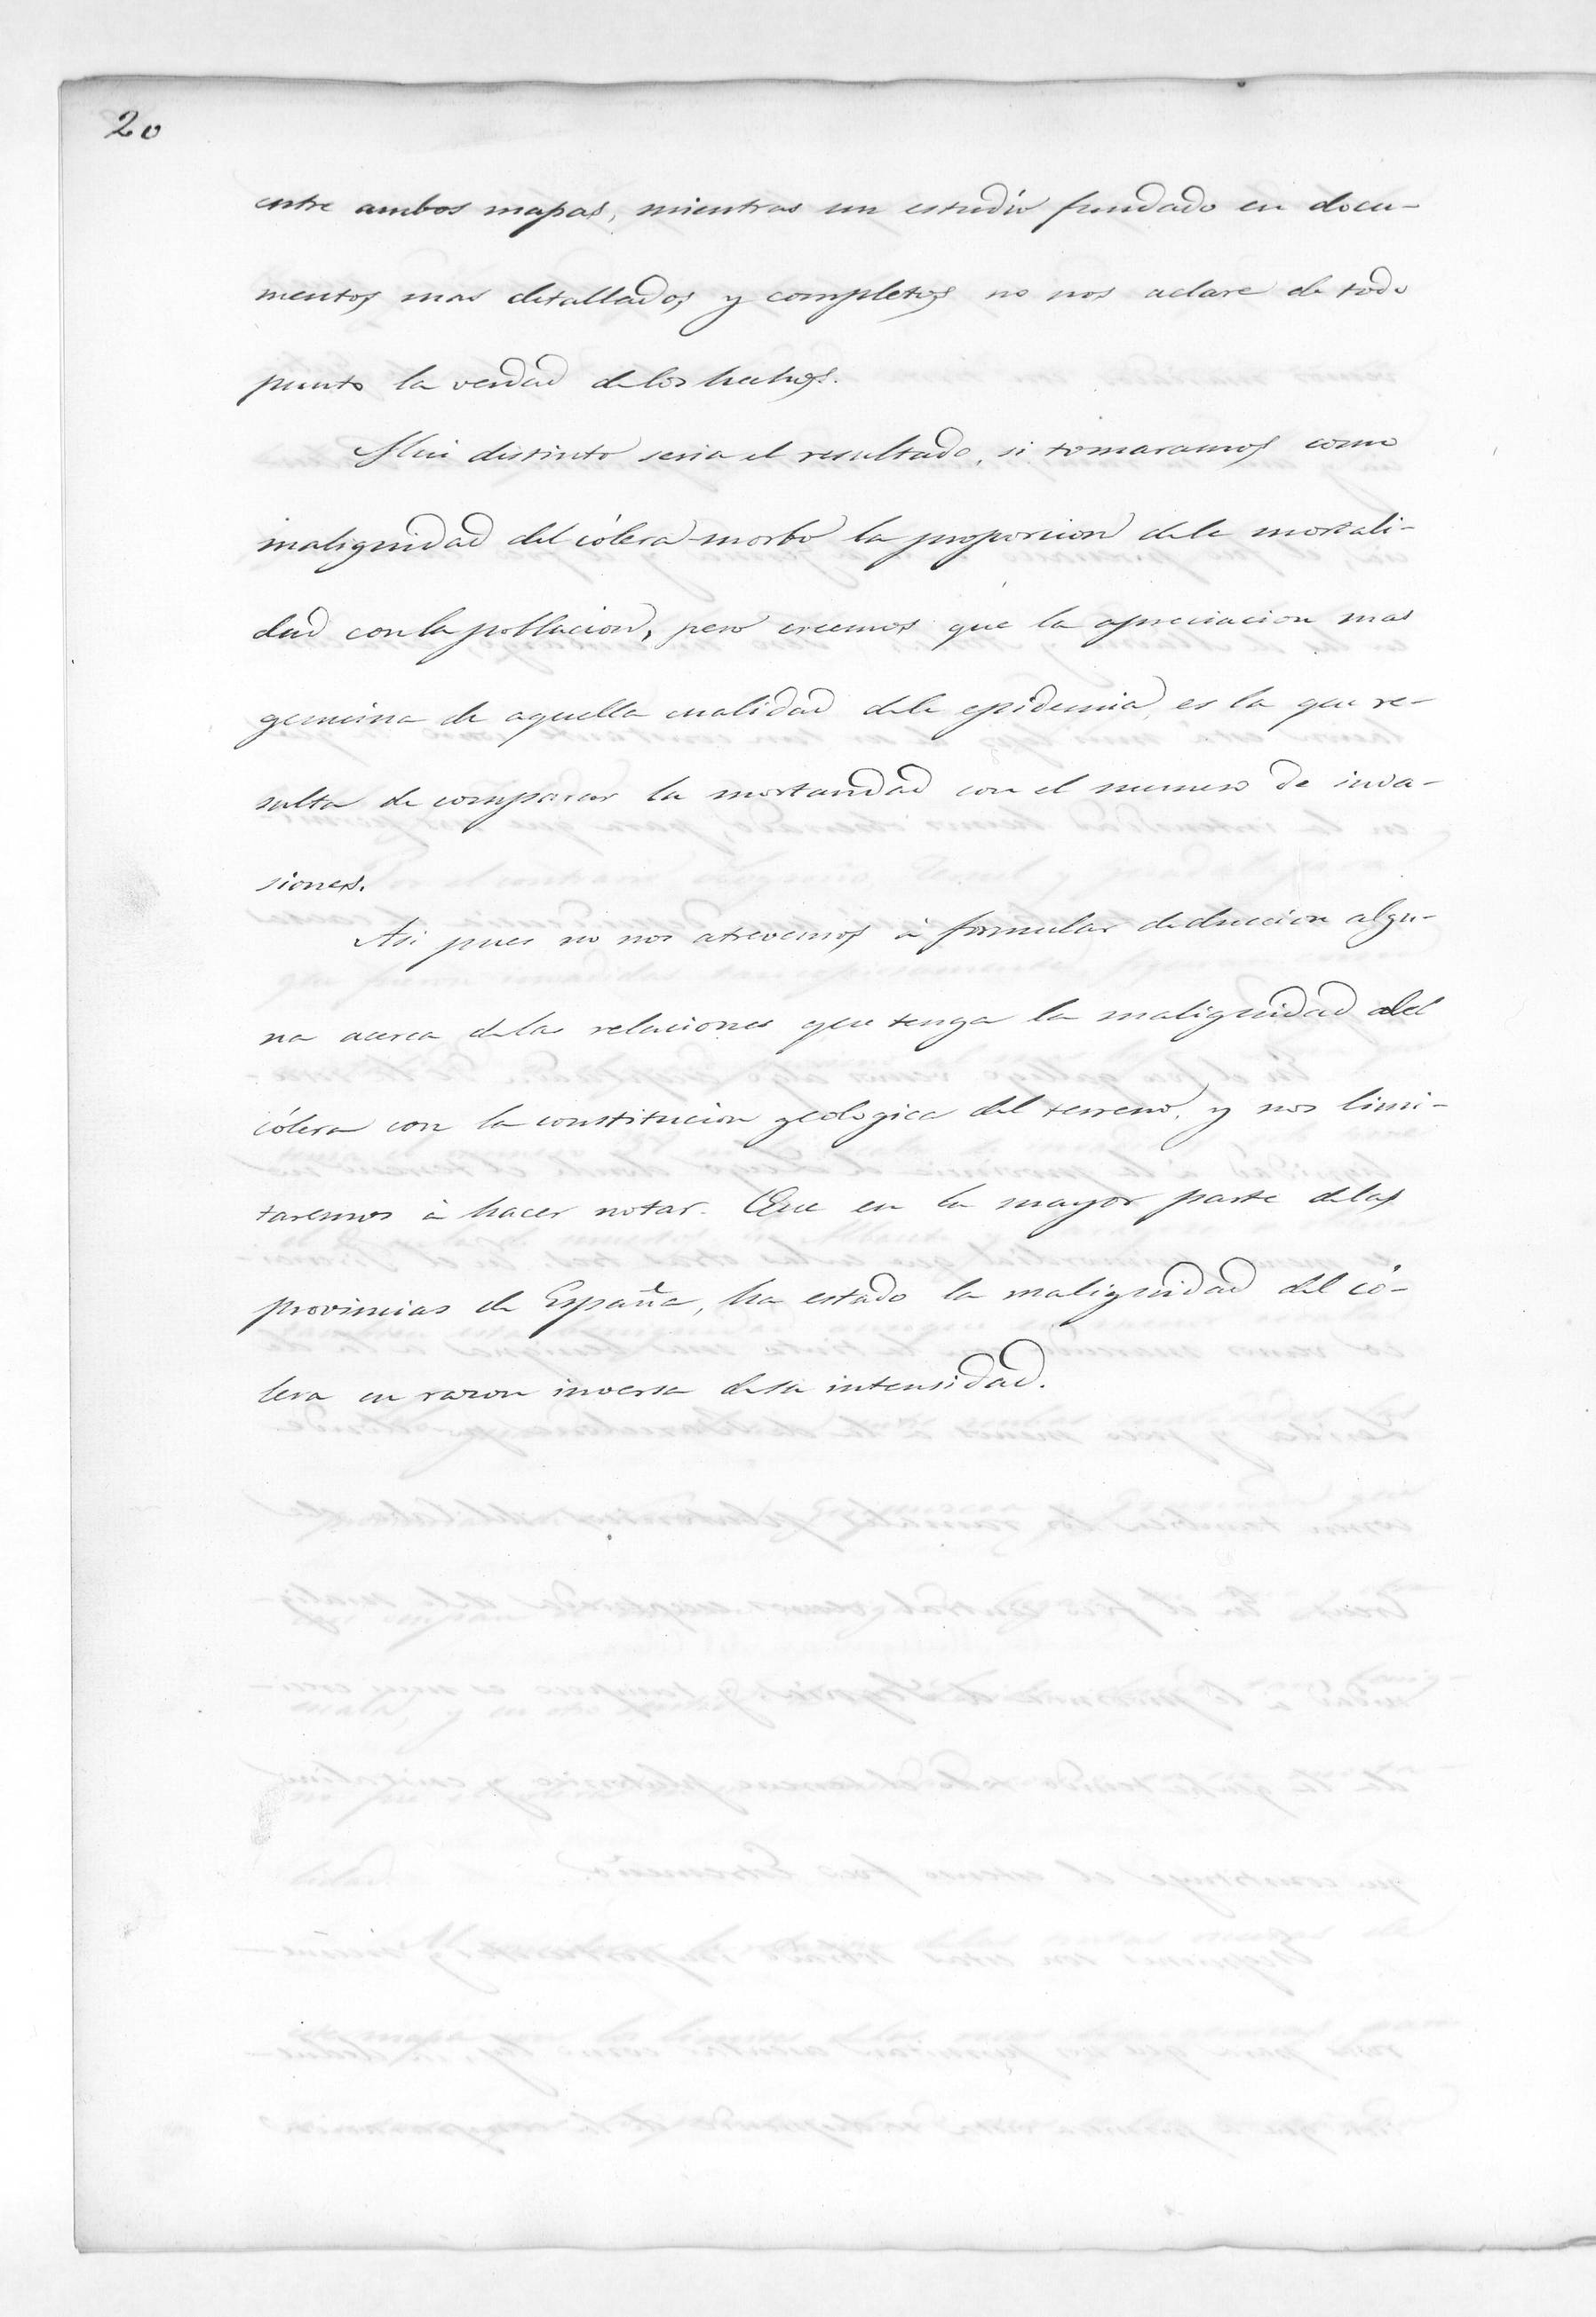 20
entre ambos mapas, mientras un estudio fundado en docu-
mentos mas detallados y completos no nos aclare de todo
punto la verdad de los hechos.
Mui distinto seria el resultado, si tomaramos como
malignidad del cólera-morbo la proporcion de la mortali-
dad con la poblacion, pero creemos que la apreciacion mas
genuina de aquella cualidad de la epidemia, es la que re-
sulta de comparar la mortandad con el numero de inva-
siones.
Asi pues no nos atrevemos á formular deduccion algu-
na acerca de las relaciones que tenga la malignidad del
cólera con la constitucion geologica del terreno, y nos limi-
taremos á hacer notar. Que en la mayor parte de las
provincias de España, ha estado la malignidad del có-
lera en razon inversa de su intensidad.